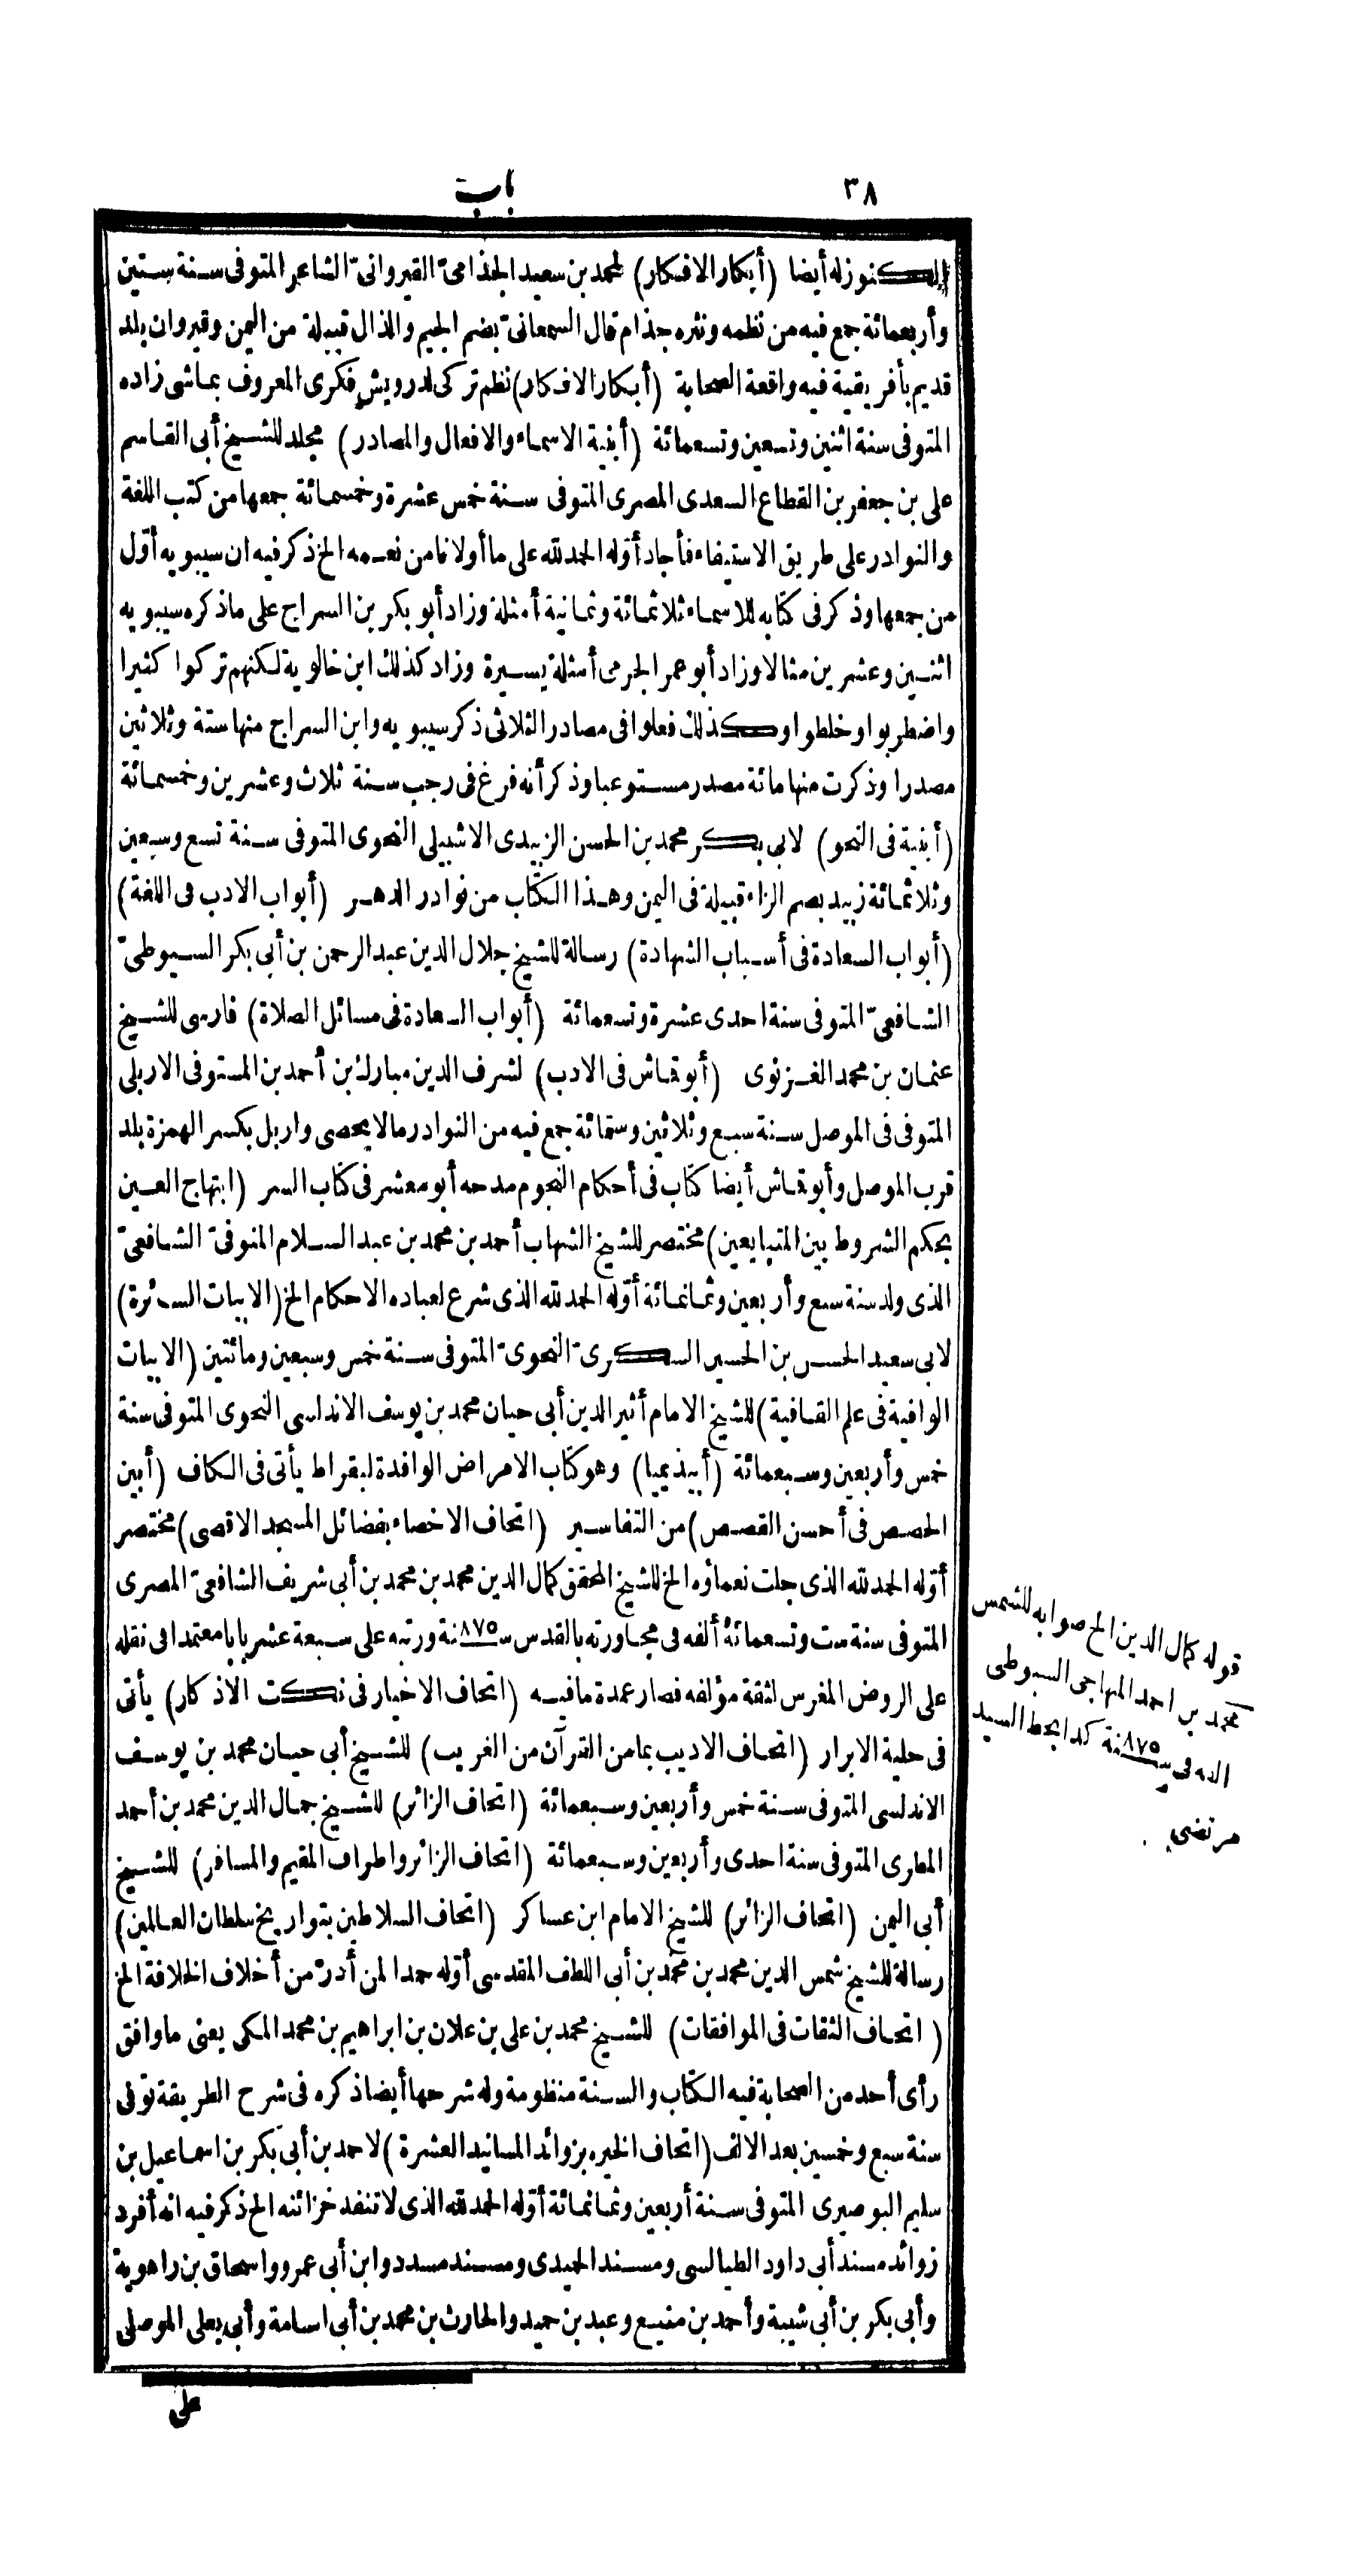 ٣٨
باب
الكنوز له أيضا (أبكار الافكار) لمحمد بن سعيد الجذامىّ القيروانىّ الشاعر المتوفى سنة ستين
وأربعمائة جمع فيه من نظمه ونثره جذام قال السمعانىّ بضم الجيم والذال قبيلة من اليمن وقيروان بلد
قديم بأفريقية فيه واقعة الصحابة (أبكار الافكار) نظم تركى لدرويش فكرى المعروف بماشى زاده
المتوفى سنة اثنين وتسعين وتسعمائة (أبنية الاسماء والافعال والمصادر) مجلد للشيخ أبى القاسم
على بن جعفر بن القطاع السعدى المصرى المتوفى سنة خمس عشرة وخمسمائة جمعها من كتب اللغة
والنوادر على طريق الاستيفاء فأجاد أوّله الحمد لله على ما أولانا من نعمه الخ ذكر فيه ان سيبويه أوّل
من جمعها وذكر فى كتابه للاسماء ثلاثمائة وثمانية أمثلة وزاد أبو بكر بن السراج على ما ذكره سيبويه
اثنين وعشرين مثالا وزاد أبو عمر الجرمى أمثلة يسيرة وزاد كذلك ابن خالويه لكنهم تركوا كثيرا
واضطربوا وخلطوا وكذلك فعلوا فى مصادر الثلاثى ذكر سيبويه وابن السراج منها ستة وثلاثين
مصدرا وذكرت منها مائة مصدر مستوعبا وذكر أنه فرغ فى رجب سنة ثلاث وعشرين وخمسمائة
(أبنية فى النحو) لابى بكر محمد بن الحسن الزبيدى الاشبيلى النحوى المتوفى سنة تسع وسبعين
وثلاثمائة زبيد بضم الزاء قبيلة فى اليمن وهذا الكتاب من نوادر الدهر (أبواب الادب فى اللغة)
(أبواب السعادة فى أسباب الشهادة) رسالة للشيخ جلال الدين عبد الرحمن بن أبى بكر السيوطىّ
الشافعىّ المتوفى سنة احدى عشرة وتسعمائة (أبواب السعادة فى مسائل الصلاة) فارسى للشيخ
عثمان بن محمد الغزنوى (أبو قماش فى الادب) لشرف الدين مبارك بن أحمد بن المستوفى الاربلى
المتوفى فى الموصل سنة سبع وثلاثين وستمائة جمع فيه من النوادر مالا يحصى واربل بكسر الهمزة بلد
قرب الموصل وأبو قماش أيضا كتاب فى أحكام النجوم مدحه أبو معشر فى كتاب السر (ابتهاج العين
بحكم الشروط بين المتبايعين) مختصر للشيخ الشهاب أحمد بن محمد بن عبد السلام المنوفىّ الشافعىّ
الذى ولد سنة سبع وأربعين وثمانمائة أوّله الحمد لله الذى شرع لعباده الاحكام الخ (الابيات السائرة)
لابى سعيد الحسن بن الحسين السكرىّ النحوىّ المتوفى سنة خمس وسبعين ومائتين (الابيات
الوافية فى علم القافية) للشيخ الامام أثير الدين أبى حيان محمد بن يوسف الاندلسى النحوى المتوفى سنة
خمس وأربعين وسبعمائة (أبيذيميا) وهو كتاب الامراض الوافدة لبقراط يأتى فى الكاف (أبين
الحصص فى أحسن القصص) من التفاسير (اتحاف الاخصاء بفضائل المسجد الاقصى) مختصر
أوّله الحمد لله الذى جلت نعماؤه الخ للشيخ المحقق كمال الدين محمد بن محمد بن أبى شريف الشافعىّ المصرى
المتوفى سنة ست وتسعمائة ألفه فى مجاورته بالقدس سنة ٨٧٥ ورتبه على سبعة عشر بابا معتمدا فى نقله
على الروض المغرس لثقة مؤلفه فصار عمدة مافيه (اتحاف الاخيار فى نكت الاذكار) يأتى
فى حلية الابرار (اتحاف الاديب بما من القرآن من الغريب) للشيخ أبى حيان محمد بن يوسف
الاندلسى المتوفى سنة خمس وأربعين وسبعمائة (اتحاف الزائر) للشيخ جمال الدين محمد بن أحمد
المطرى المتوفى سنة احدى وأربعين وسبعمائة (اتحاف الزائر واطراف المقيم والمسافر) للشيخ
أبى اليمن (اتحاف الزائر) للشيخ الامام ابن عساكر (اتحاف السلاطين بتواريخ سلطان العالمين)
رسالة للشيخ شمس الدين محمد بن محمد بن أبى اللطف المقدسى أوّله حمدا لمن أدرّ من أخلاف الخلافة الخ
(اتحاف الثقات فى الموافقات) للشيخ محمد بن على بن علان بن ابراهيم بن محمد المكى يعنى ماوافق
رأى أحد من الصحابة فيه الكتاب والسنة منظومة وله شرحها أيضا ذكره فى شرح الطريقة توفى
سنة سبع وخمسين بعد الالف (اتحاف الخيره بزوائد المسانيد العشرة) لاحمد بن أبى بكر بن اسماعيل بن
سليم البوصيرى المتوفى سنة أربعين وثمانمائة أوّله الحمد لله الذى لا تنفد خزائنه الخ ذكر فيه انه أفرد
زوائد مسند أبى داود الطيالسى ومسند الحميدى ومسند مسدد وابن أبى عمرو واسحاق بن راهوية
وأبى بكر بن أبى شيبة وأحمد بن منيع وعبد بن حميد والحارث بن محمد بن أبى اسامة وأبى يعلى الموصلى
على
قوله كمال الدين الخ صوابه للشمس
محمد بن احمد المنهاجى السيوطى
الفه فى سنة ٨٧٥ كذا بخط السيد
مرتضى